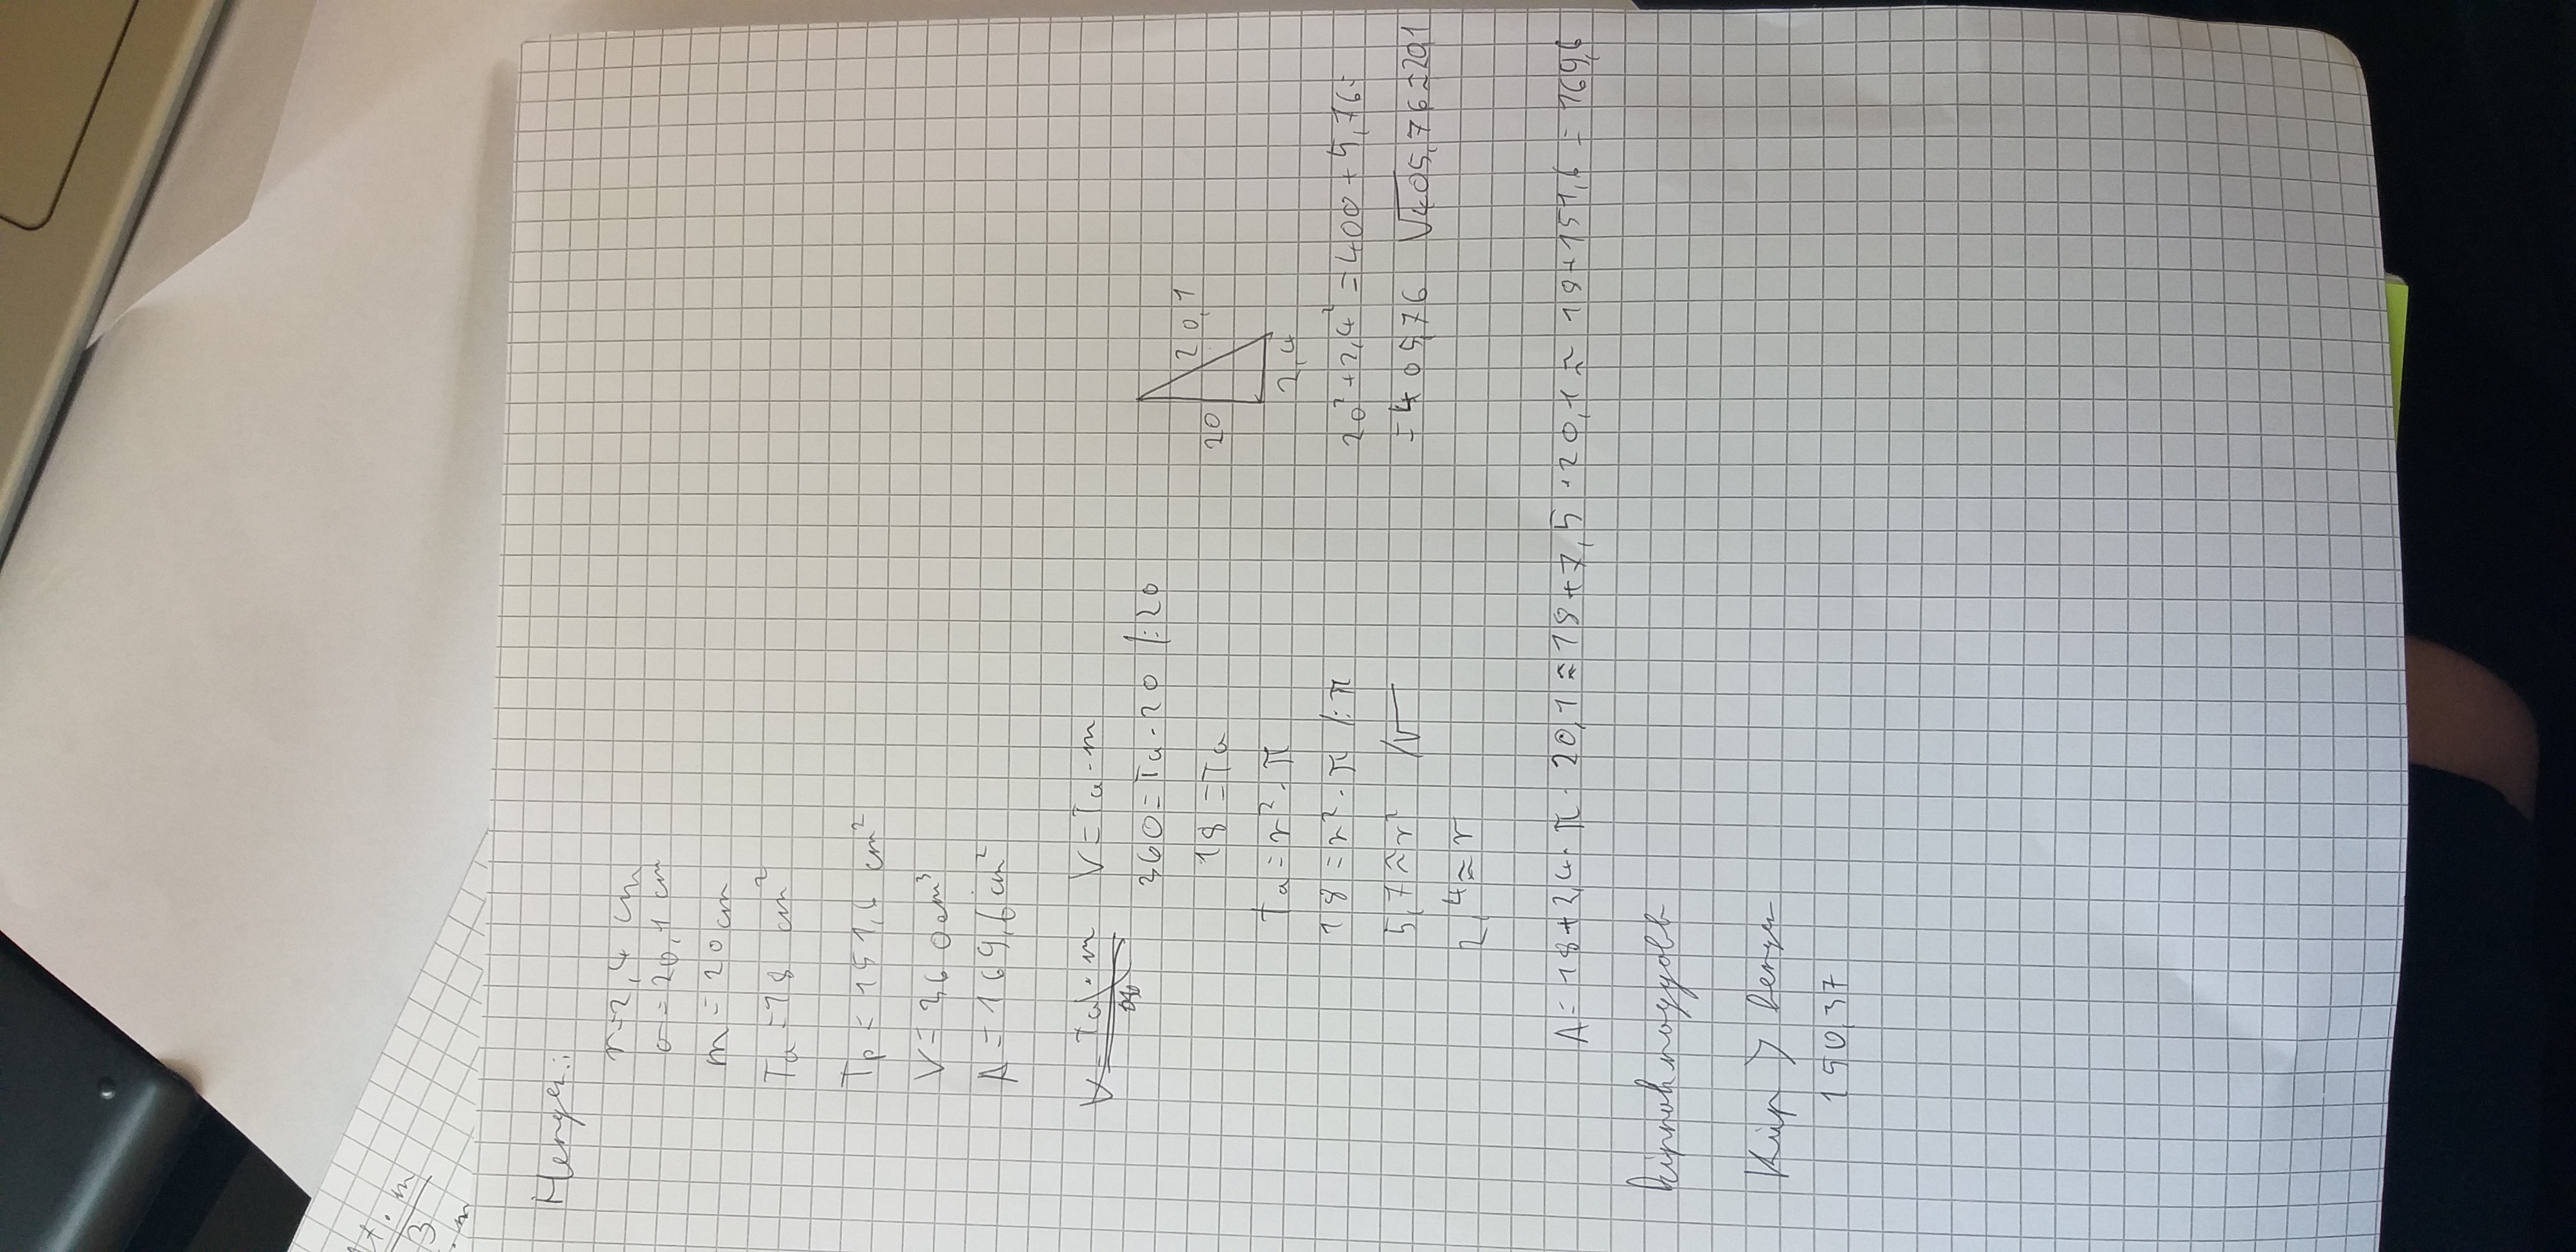 Henger:
r=2,4 cm
a=20,1 cm
m=20cm
Ta=18 cm²
Tp=151,6 cm²
V=360cm³
A=169,6cm²
V=Ta·m
V=Ta·m
360=Ta·20 /:20
18=Ta
Ta=r²·π
18=r²·π /:π
5,7≈r² /√
2,4≈r
20
20,1
2,4
20²+2,4²=400+5,76=
=405,76 √405,76≈20,1
A=18+2,4·π·20,1≈18+7,5·20,1≈18+151,6=169,6
Kúp > henger
150,37
A+·m
3
·m